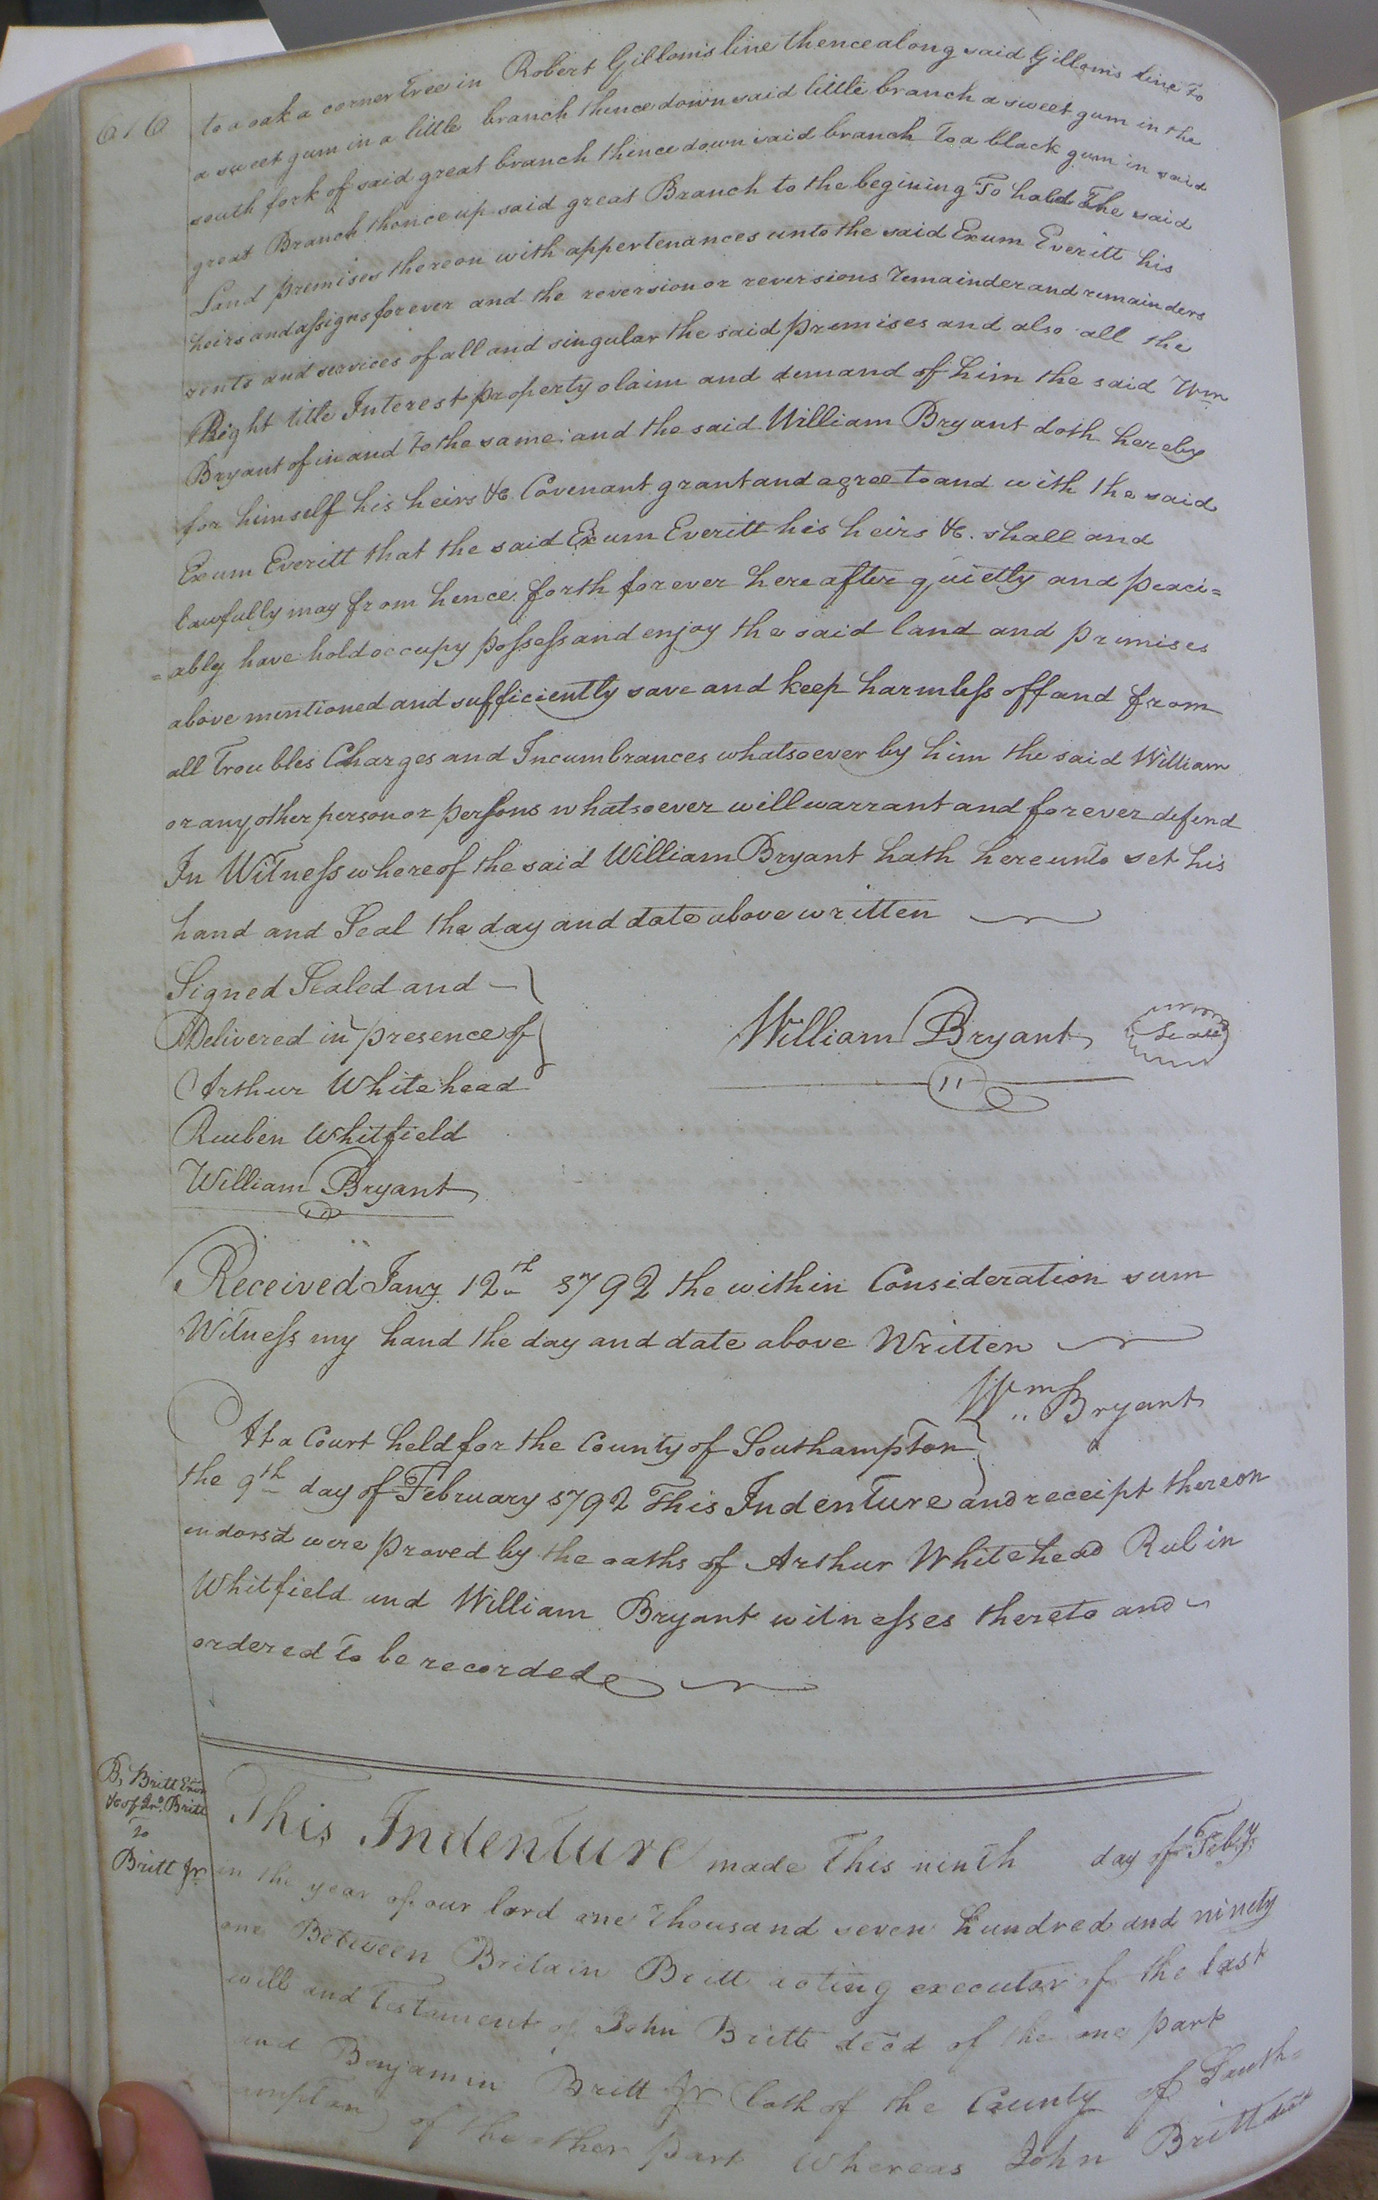 616
to a oak a corner tree in Robert Gilloms line thence along said Gilloms line to
a sweet gum in a little branch thence down said little branch a sweet gum in the
south fork of said great branch thence down said branch to a black gum in said
great Branch thence up said great Branch to the begining To hold The said
Land premises thereon with appertenances unto the said Exum Everitt his
heirs and assigns forever and the reversion or reversions remainder and remainders
rents and services of all and singular the said premises and also all the
Right title Interest property claim and demand of him the said Wm
Bryant of in and to the same: and the said William Bryant doth hereby
for himself his heirs &c. Covenant grant and agree to and with the said
Exum Everitt that the said Exum Everitt his heirs &c. shall and
lawfully may from hence forth forever hereafter quietly and peaci=
=ably have hold occupy possess and enjoy the said land and premises
above mentioned and sufficiently save and keep harmless off and from
all Troubles Charges and Incumbrances whatsoever by him the said William
or any other person or persons whatsoever will warrant and forever defend
In Witness whereof the said William Bryant hath hereunto set his
hand and Seal the day and date above written
Signed Sealed and
Delivered in presence of
Arthur Whitehead
Reuben Whitfield
William Bryant
William Bryant Seal
Received Jany 12th 1792 the within Consideration sum
Witness my hand the day and date above Written
Wm Bryant
At a Court held for the County of Southampton
the 9th day of February 1792 This Indenture and receipt thereon
endors'd were proved by the oaths of Arthur Whitehead Rubin
Whitfield and William Bryant witnesses thereto and
ordered to be recorded
B, Britt Exor
&c of Jno. Britt
To
Britt Jr
This Indenture made This ninth day of Feby.
in the year of our lord one Thousand seven hundred and ninety
one Between Britain Britt acting executor of the last
will and Testament of John Britt decd of the one part
and Benjamin Britt Jr both of the County of South=
ampton of the other part Whereas John Britt decd